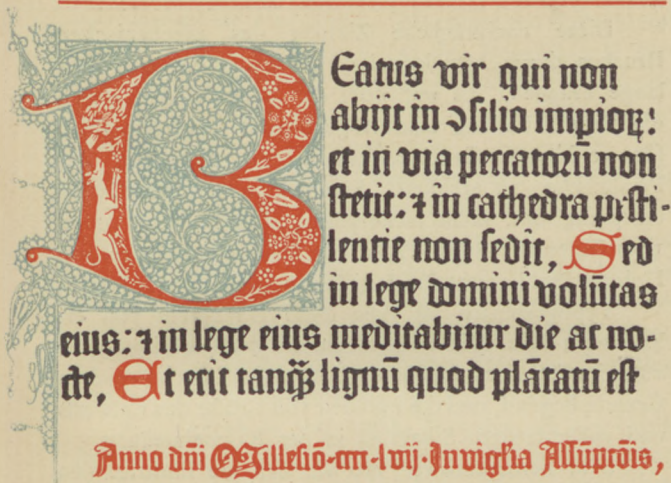 Beatus vir qui non
abijt in ↄsilio impioꝝ:
et in via peccatorū non
stetit: ⁊ in cathedra pesti-
lentie non sedit, Sed
in lege domini volūtas
eius: ⁊ in lege eius meditabitur die ac no-
cte, Et erit tanqꝫ lignū quod plātatū est
Anno dn̄i Millesiō·cccc·lvij·In vigl'ia Assūpcōis,